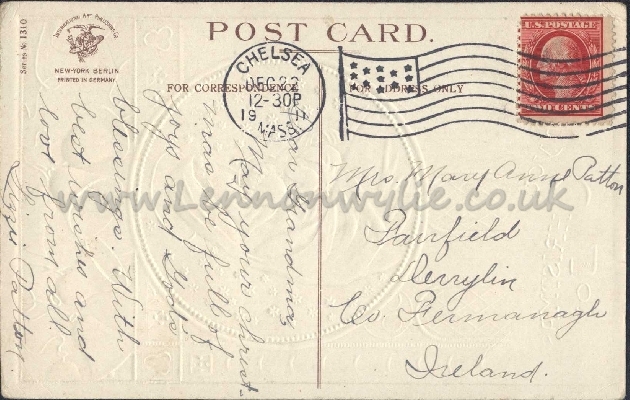 POST CARD.
Series № 1310
International Art Publishing Co.
NEW-YORK BERLIN
PRINTED IN GERMANY
FOR CORRESPONDENCE
FOR ADDRESS ONLY
CHELSEA
DEC 22
12-30P
19 11
MASS
U.S. POSTAGE
TWO CENTS
Grandma
May your Christ-
mas be full of
joys and God's
blessings. With
best wishes and
love from all.
Lizzie Patton.
Mrs. Mary Anne Patton
Fairfield
Derrylin
Co Fermanagh
Ireland.
www.Lennonwylie.co.uk